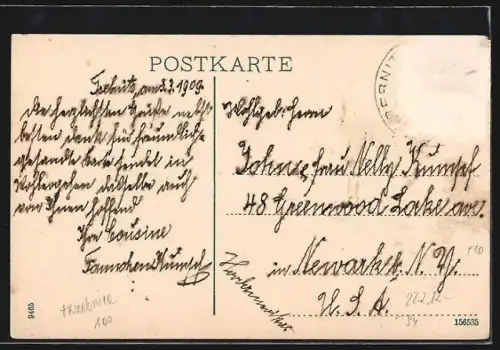 POSTKARTE
Trebnitz, am 3.3.1909.
Die herzlichsten Grüße nebst
besten Dank für freundlich
gesandte Karte sendet in
Wohlergehen dasselbe auch
von Ihnen hoffend
Ihre Cousine
Wohlgeboren
John u. Frau Nelly Kumpf
48 Greenwood Lake ave.
in Newark N. Y.
U. S. A.
9465
100
156535